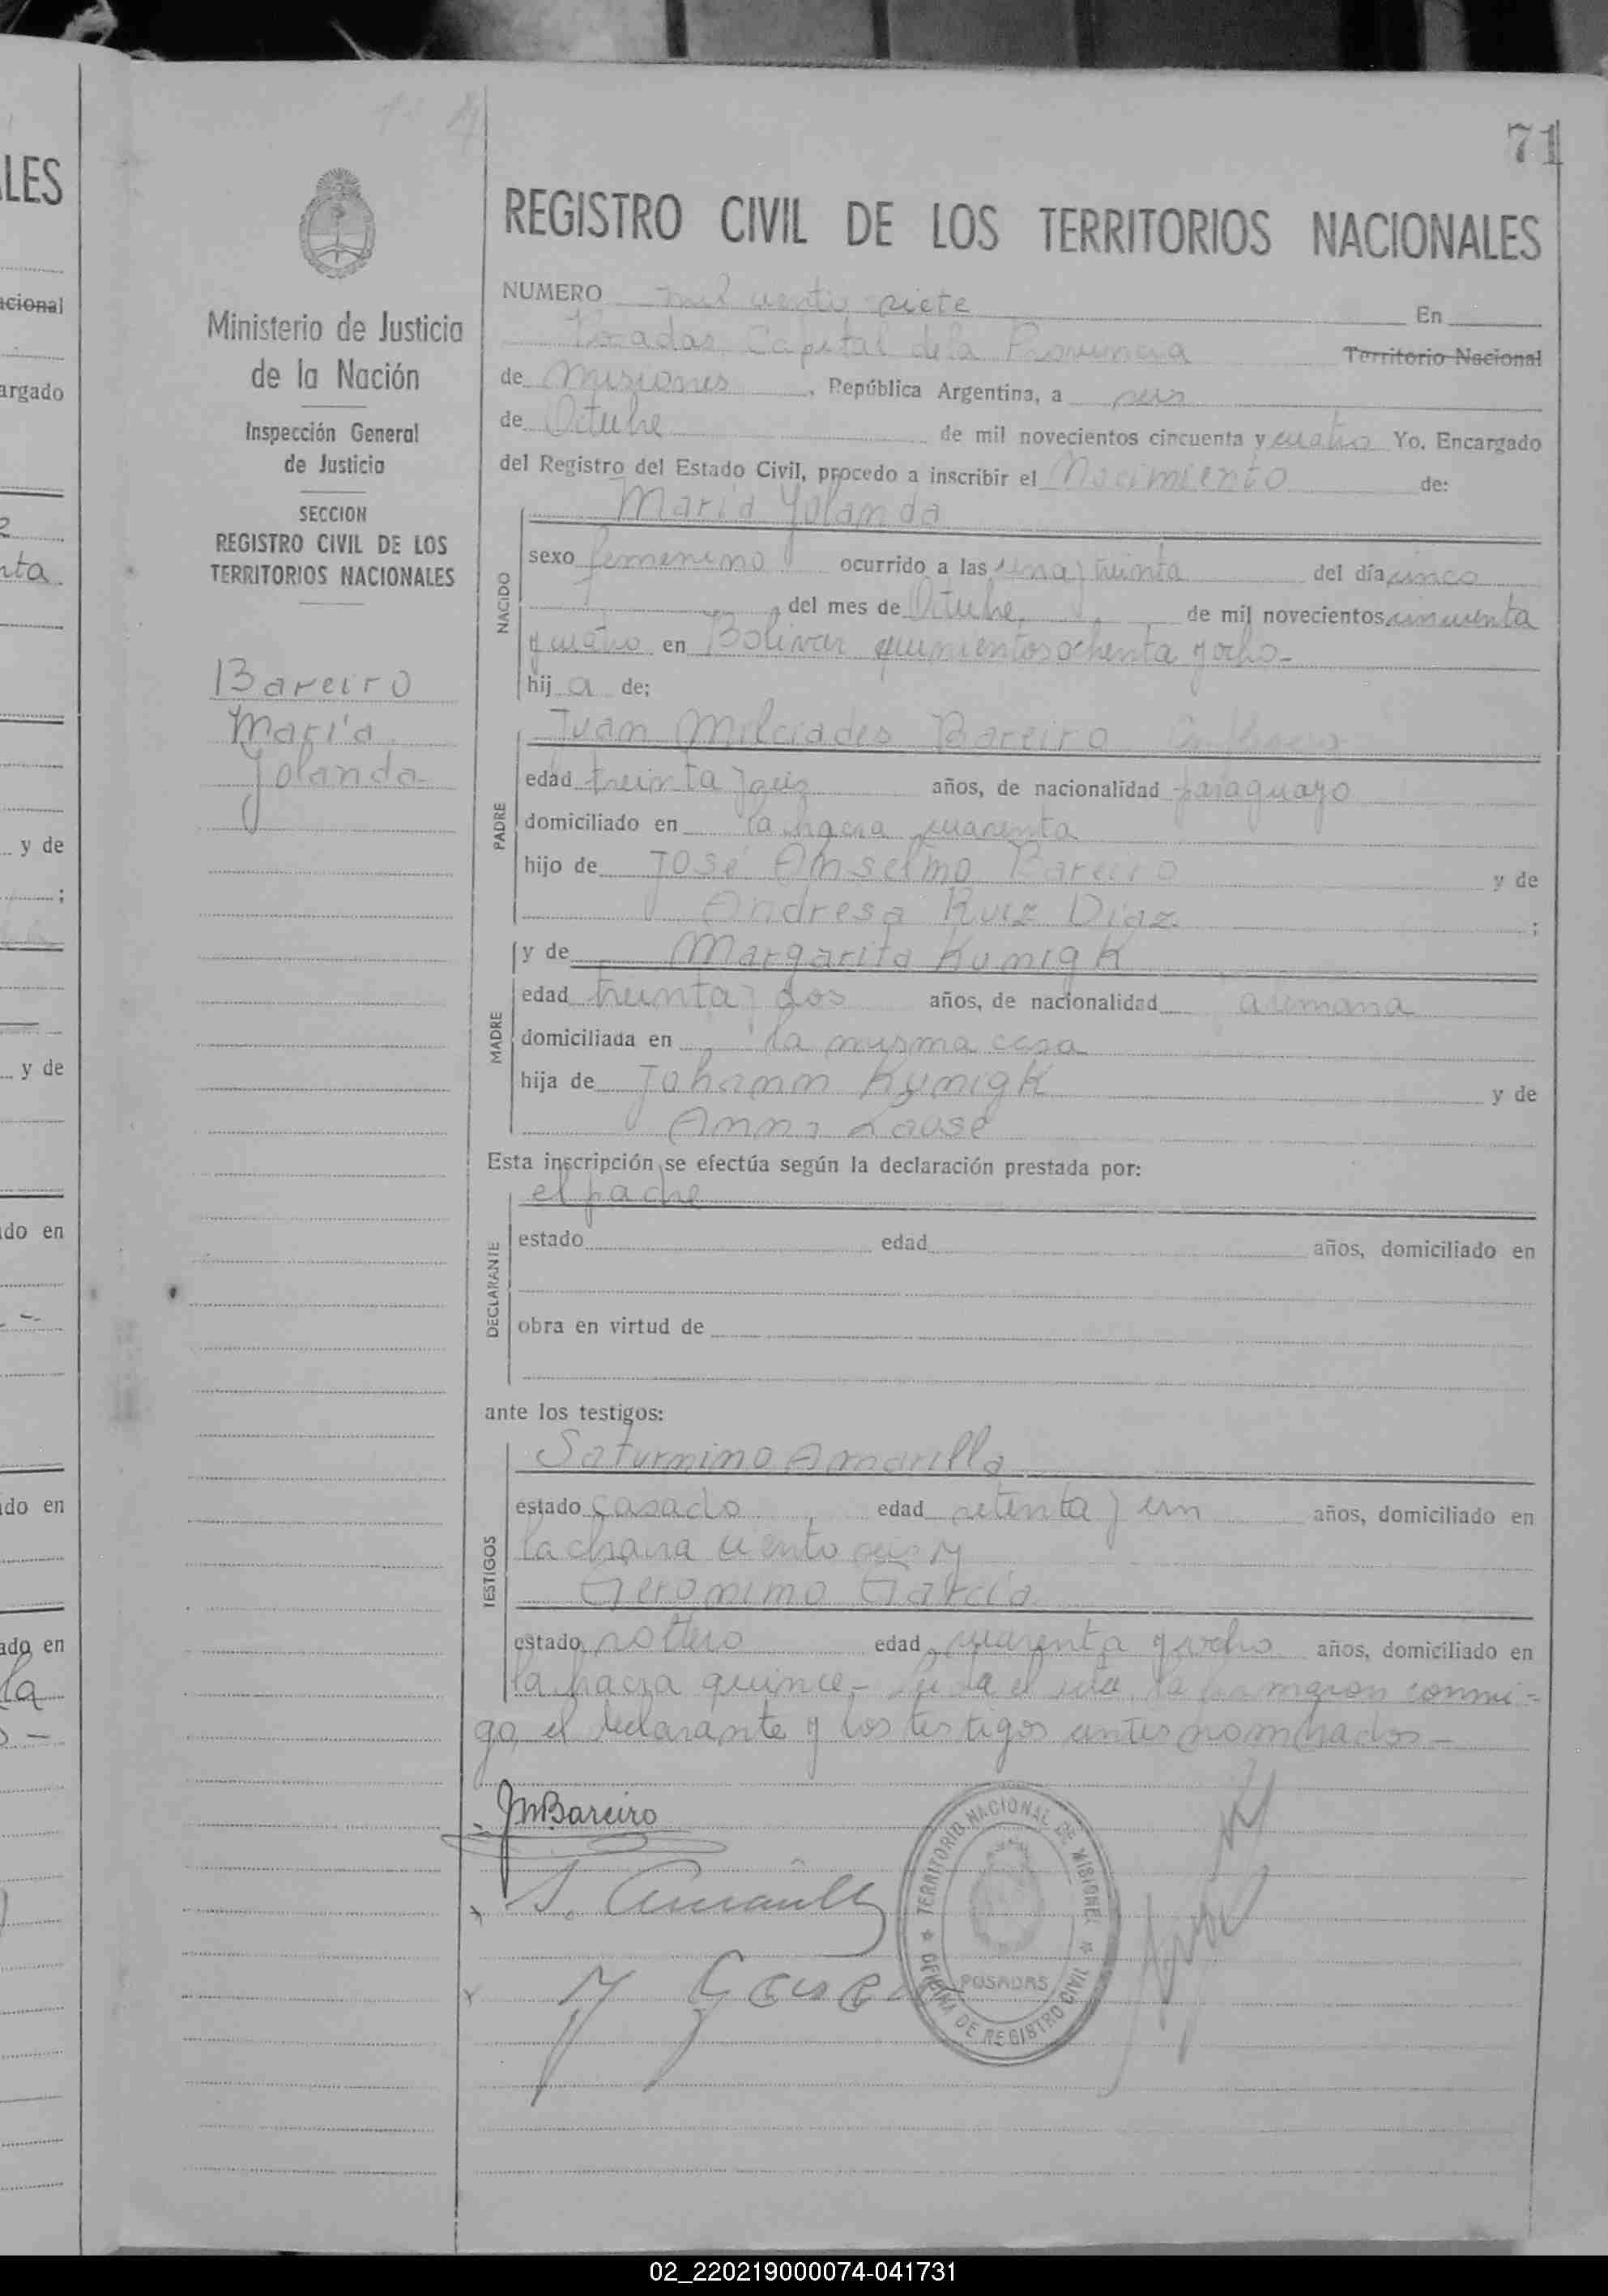 71
LES
cional
argado
nta
y de
y de
do en
do en
ado en
la
Ministerio de Justicia
de la Nación
Inspección General
de Justicia
SECCION
REGISTRO CIVIL DE LOS
TERRITORIOS NACIONALES
Bareiro
María
Yolanda
REGISTRO CIVIL DE LOS TERRITORIOS NACIONALES
NUMERO mil ciento siete En
Posadas Capital de la Provincia Territorio Nacional
de Misiones, República Argentina, a seis
de Octubre de mil novecientos cincuenta y cuatro Yo. Encargado
del Registro del Estado Civil, procedo a inscribir el Nacimiento de:
María Yolanda
NACIDO
sexo femenino ocurrido a las una y treinta del día cinco
del mes de Octubre de mil novecientos cincuenta
y cuatro en Bolivar quinientos ochenta y ocho-
hija de;
PADRE
Juan Milciades Bareiro
edad treinta y seis años, de nacionalidad paraguayo
domiciliado en la chacra cuarenta
hijo de José Anselmo Bareiro y de
Andresa Ruiz Diaz ;
MADRE
y de Margarita Kumigk
edad treinta y dos años, de nacionalidad alemana
domiciliada en la misma casa
hija de Johann Kumigk y de
Anna Laose
Esta inscripción se efectúa según la declaración prestada por:
DECLARANTE
el padre
estado edad años, domiciliado en
obra en virtud de
ante los testigos:
TESTIGOS
Saturnino Amarilla
estado casado edad setenta y un años, domiciliado en
la chacra ciento seis y
Geronimo García
estado soltero edad cuarenta y ocho años, domiciliado en
la chacra quince- Leida el acta, la firmaron conmi-
go, el declarante y los testigos antes nombrados-
JMBareiro
S. Amarilla
J Garcia
TERRITORIO NACIONAL DE MISIONES
POSADAS
OFICINA DE REGISTRO CIVIL
02_220219000074-041731